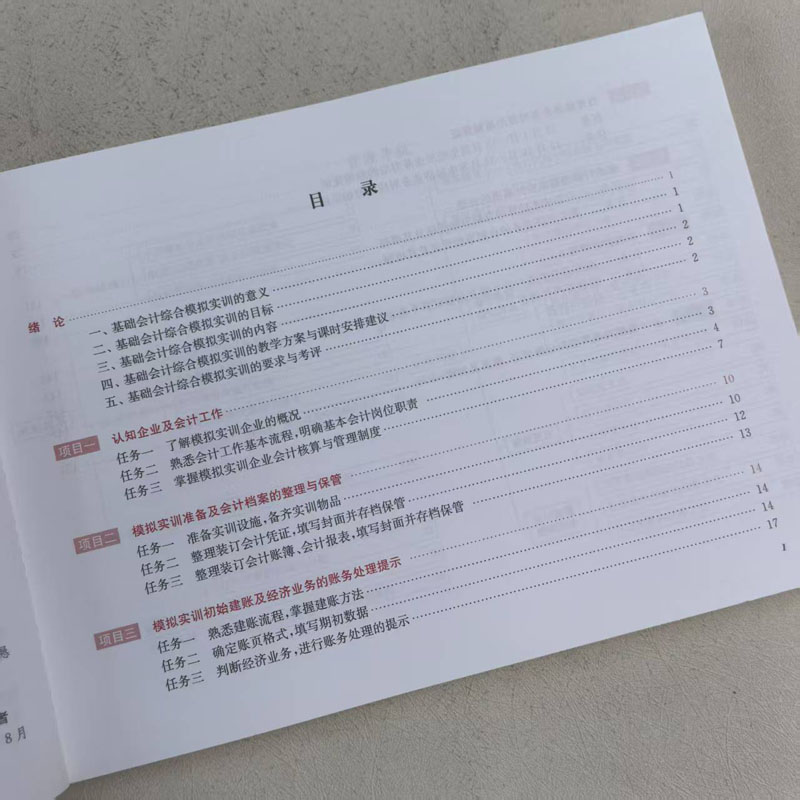 目 录
绪 论 1
一、基础会计综合模拟实训的意义 1
二、基础会计综合模拟实训的目标 1
三、基础会计综合模拟实训的内容 2
四、基础会计综合模拟实训的教学方案与课时安排建议 2
五、基础会计综合模拟实训的要求与考评 2
项目一 认知企业及会计工作 3
任务一 了解模拟实训企业的概况 3
任务二 熟悉会计工作基本流程,明确基本会计岗位职责 4
任务三 掌握模拟实训企业会计核算与管理制度 7
项目二 模拟实训准备及会计档案的整理与保管 10
任务一 准备实训设施,备齐实训物品 10
任务二 整理装订会计凭证,填写封面并存档保管 12
任务三 整理装订会计账簿、会计报表,填写封面并存档保管 13
项目三 模拟实训初始建账及经济业务的账务处理提示 14
任务一 熟悉建账流程,掌握建账方法 14
任务二 确定账页格式,填写期初数据 14
任务三 判断经济业务,进行账务处理的提示 17
1
者
8月